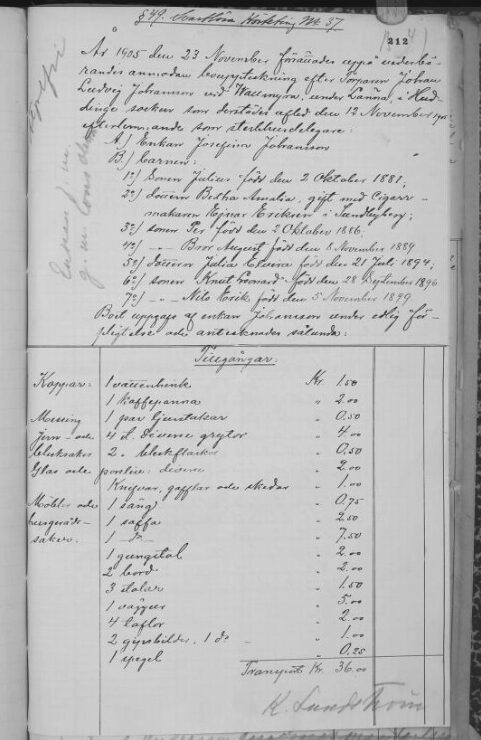 § 49. Svartlösa Häradsrätt No 37
212
År 1905 den 23 November förrättades uppå underbö-
randes anmodan bouppteckning efter Torparen Johan
Ludvig Johansson vid Wallmyra, under Länna, i Hud-
dinge socken som derstädes afled den 12 November 1905
efterlemnande som sterbhusdelegare:
A.) Enkan Josefina Johansson
B.) barnen:
1o) Sonen Julius född den 2 Oktober 1881;
2o) dottern Bertha Amalia, gift med Cigarr-
makaren Ejnar Eriksen i Sundbyberg;
3o) sonen Per född den 2 Oktober 1886.
4o) -"- Bror August född den 8 November 1889
5o) dottern Julia född den 21 Juli 1894,
6o) sonen Knut Leonard född den 28 September 1896
7o) -"- Nils Erik född den 5 November 1899
Boet uppgafs af enkan Johansson under edlig för-
pligtelse och antecknades sålunda:
Tillgångar:
Koppar: 1 vattenhink Kr. 1.50
1 kaffepanna " 2.00
Messing 1 par ljusstakar " 0.50
jern- och 4 st. diverse grytor " 4.00
blecksaker 2 " bleckflaskor " 0.50
Glas och porslin: diverse " 2.00
Knifvar, gafflar och skedar " 1.00
Möbler och 1 säng " 0.75
husgeråds- 1 soffa " 2.50
saker. 1 do " 7.50
1 gungstol " 2.00
2 bord " 2.00
3 stolar " 1.50
1 väggur " 5.00
4 taflor " 2.00
2 gipsbilder, 1 do " 1.00
1 spegel " 0.25
Transport Kr. 36.00
K. Lundström